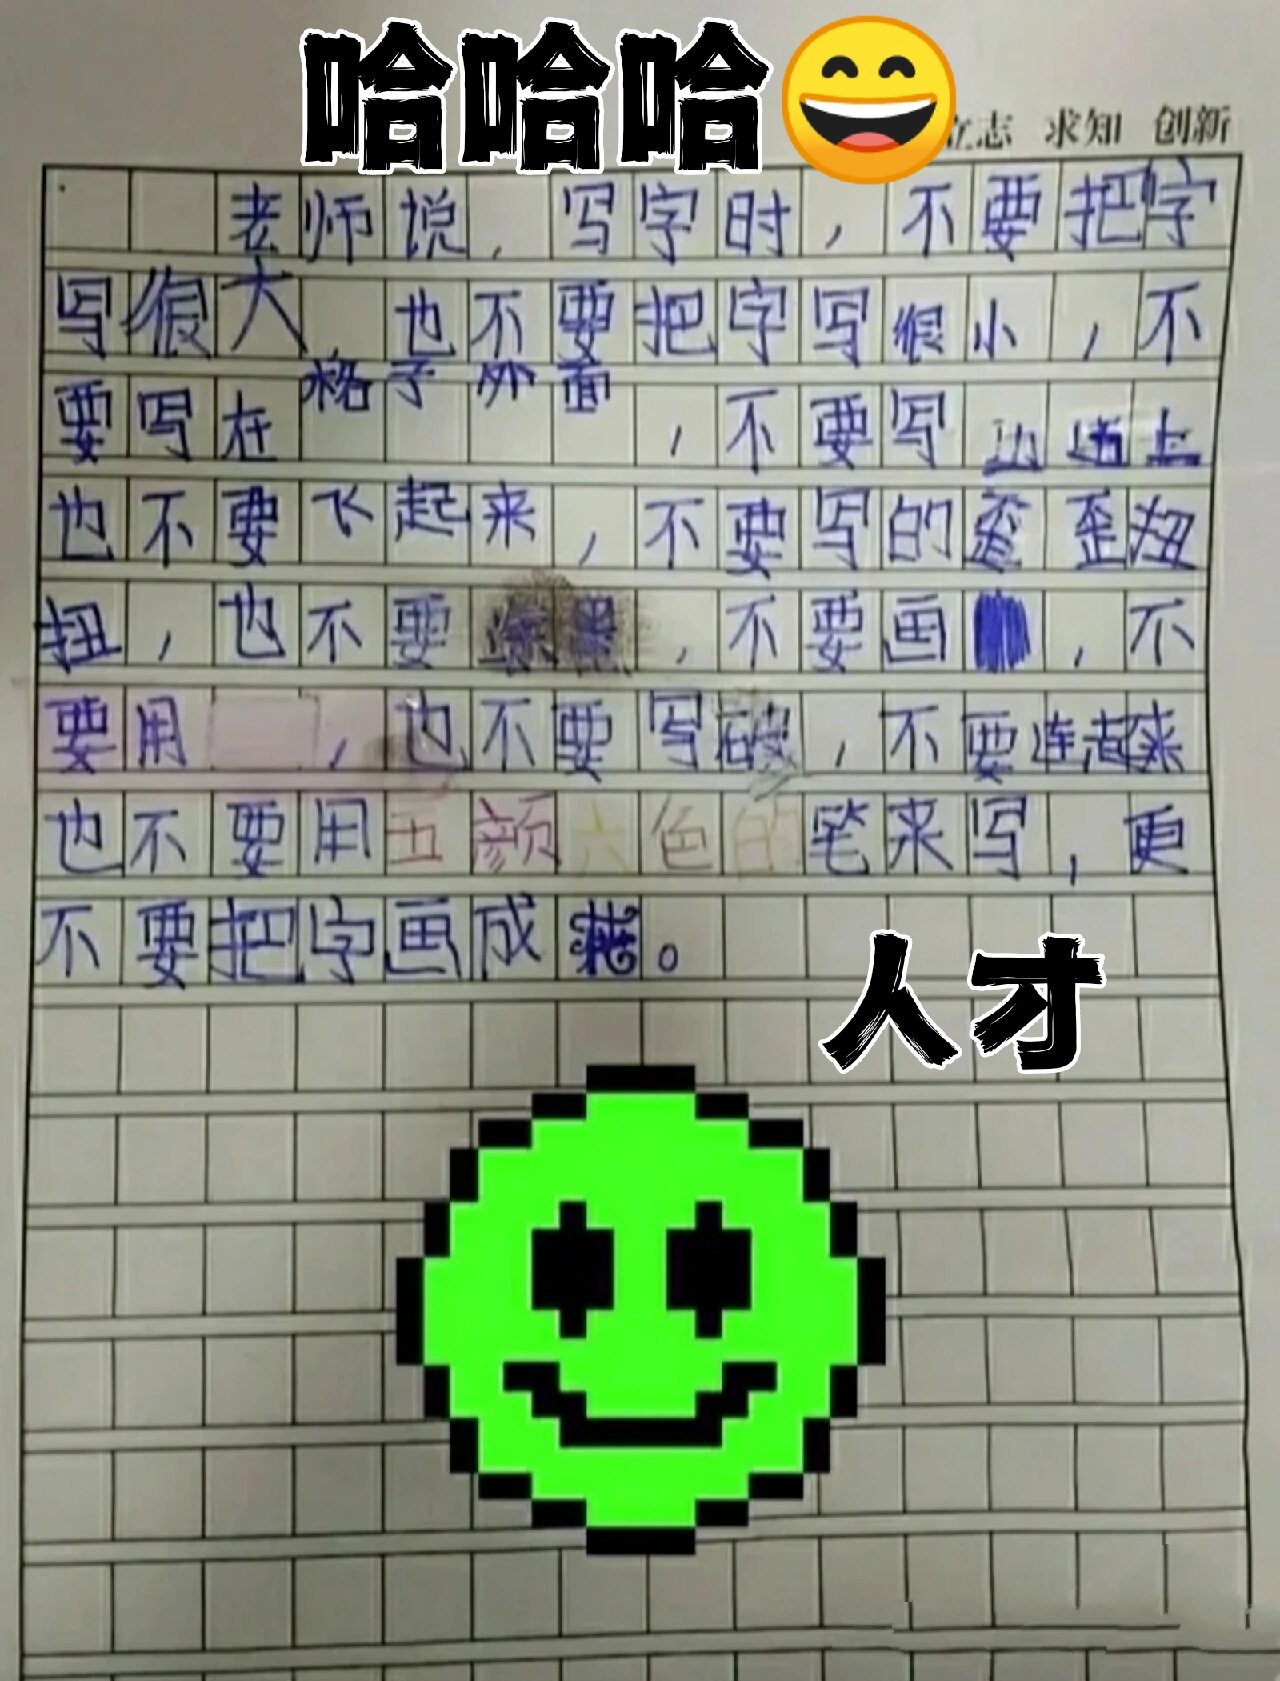 哈哈哈
立志 求知 创新
老师说，写字时，不要把字
写很大，也不要把字写很小，不
要写在格子外面，不要写边边上
也不要飞起来，不要写的歪歪扭
扭，也不要涂黑，不要画，不
要用，也不要写破，不要连起来
也不要用五颜六色的笔来写，更
不要把字画成花。
人才